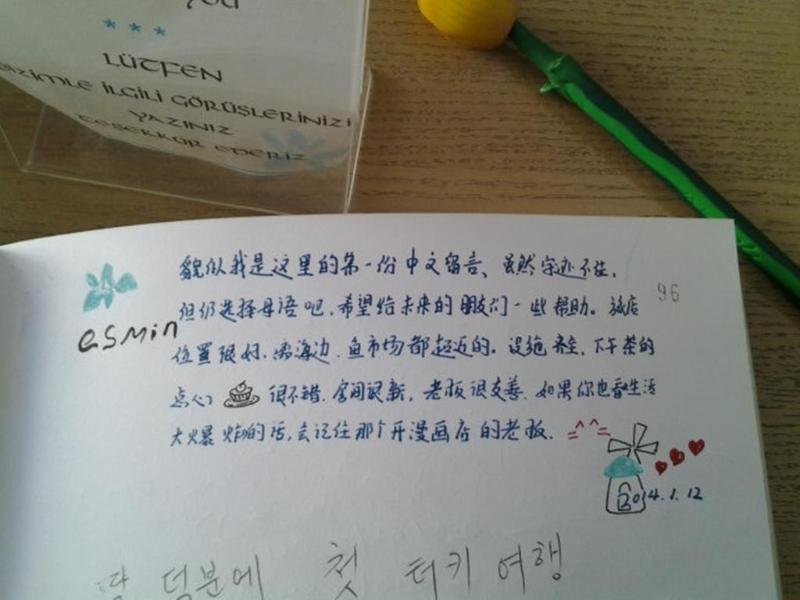 YOU
* * *
LÜTFEN
BİZİMLE İLGİLİ GÖRÜŞLERİNİZİ
YAZINIZ
TEŞEKKÜR EDERİZ
esmin
96
貌似我是这里的第一份中文留言、虽然字迹不佳,
但仍选择母语吧,希望给未来的朋友们一些帮助。旅店
位置很好,离海边、鱼市场都超近的。设施齐全,下午茶的
点心 很不错,房间很新,老板很友善,如果你也看生活
大爆炸的话,会记住那个开漫画店的老板.
=^^=
2014.1.12
덕분에 첫 터키 여행